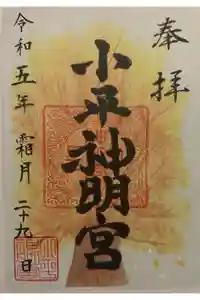 奉拝
小平神明宮
令和五年 霜月 二十九日